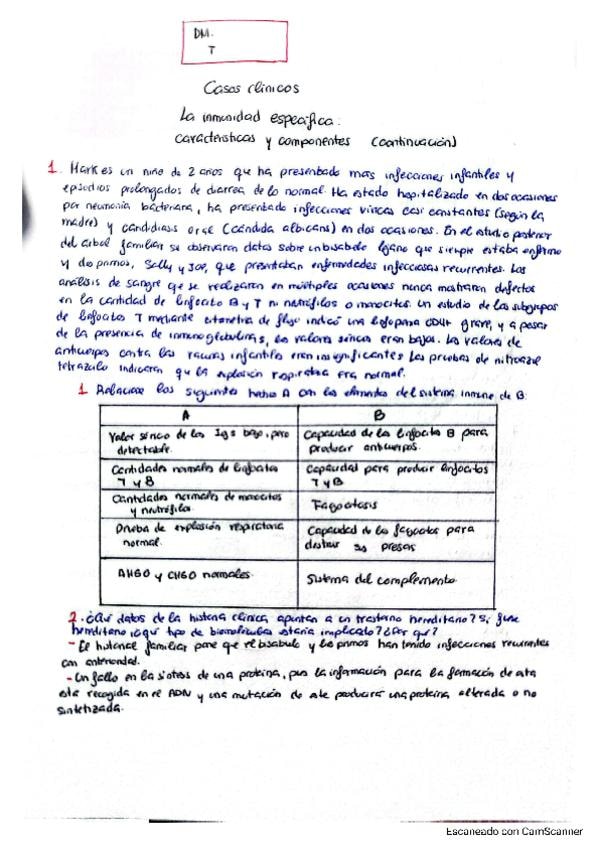 DM.
T
Casos clínicos
La inmunidad específica:
características y componentes (continuación)
1. Mark es un niño de 2 años que ha presentado mas infecciones infantiles y
episodios prolongados de diarrea de lo normal. Ha estado hospitalizado en dos ocasiones
por neumonía bacteriana, ha presentado infecciones víricas casi constantes (según la
madre) y candidiasis oral (cándida albicans) en dos ocasiones. En el estudio posterior
del arbol familiar se observaron datos sobre un bisabuelo lejano que siempre estaba enfermo
y dos primos, Sally y Joe, que presentaban enfermedades infecciosas recurrentes. Los
análisis de sangre que se realizaron en múltiples ocasiones nunca mostraron defectos
en la cantidad de linfocito B y T ni neutrófilos o monocitos. Un estudio de los subgrupos
de linfocitos T mediante citometría de flujo indicó una linfopenia CD4+ grave, y a pesar
de la presencia de inmunoglobulinas, los valores séricos eran bajos. Los valores de
anticuerpos contra las vacunas infantiles eran insignificantes. Las pruebas de nitroazul
tetrazolio indicaron que la explosión respiratoria era normal.
1. Relacione los siguientes hechos A con los elementos del sistema inmune de B:
A B
Valor sérico de las Igs bajo, pero detectable. Capacidad de los linfocitos B para producir anticuerpos.
Cantidades normales de linfocitos T y B Capacidad para producir linfocitos T y B
Cantidades normales de monocitos y neutrófilos. Fagocitosis
Prueba de explosión respiratoria normal. Capacidad de los fagocitos para destruir sus presas
AH50 y CH50 normales. Sistema del complemento
2. ¿Qué datos de la historia clínica apuntan a un trastorno hereditario? Si fuese
hereditario ¿qué tipo de biomoléculas estaría implicado? ¿Por qué?
- El historial familiar pone que el bisabuelo y los primos han tenido infecciones recurrentes
con anterioridad.
- Un fallo en la síntesis de una proteína, pues la información para la formación de esta
está recogida en el ADN y una mutación de este produciría una proteína alterada o no
sintetizada.
Escaneado con CamScanner